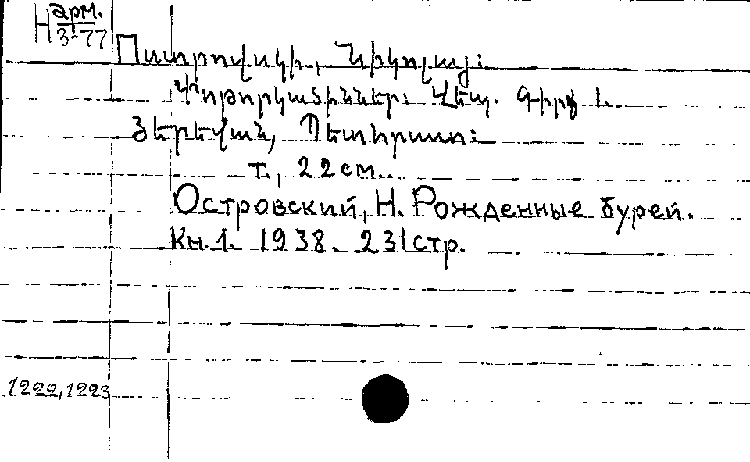 Н арм.
3-77
Օստրովսկի, Նիկոլայ:
Փոթորկածիններ: Վեպ. Գիրք 1.
Յերեվան, Պետհրատ:
т., 22 см.
Островский, Н. Рожденные бурей.
Кн. 1. 1938. 231 стр.
1222, 1223